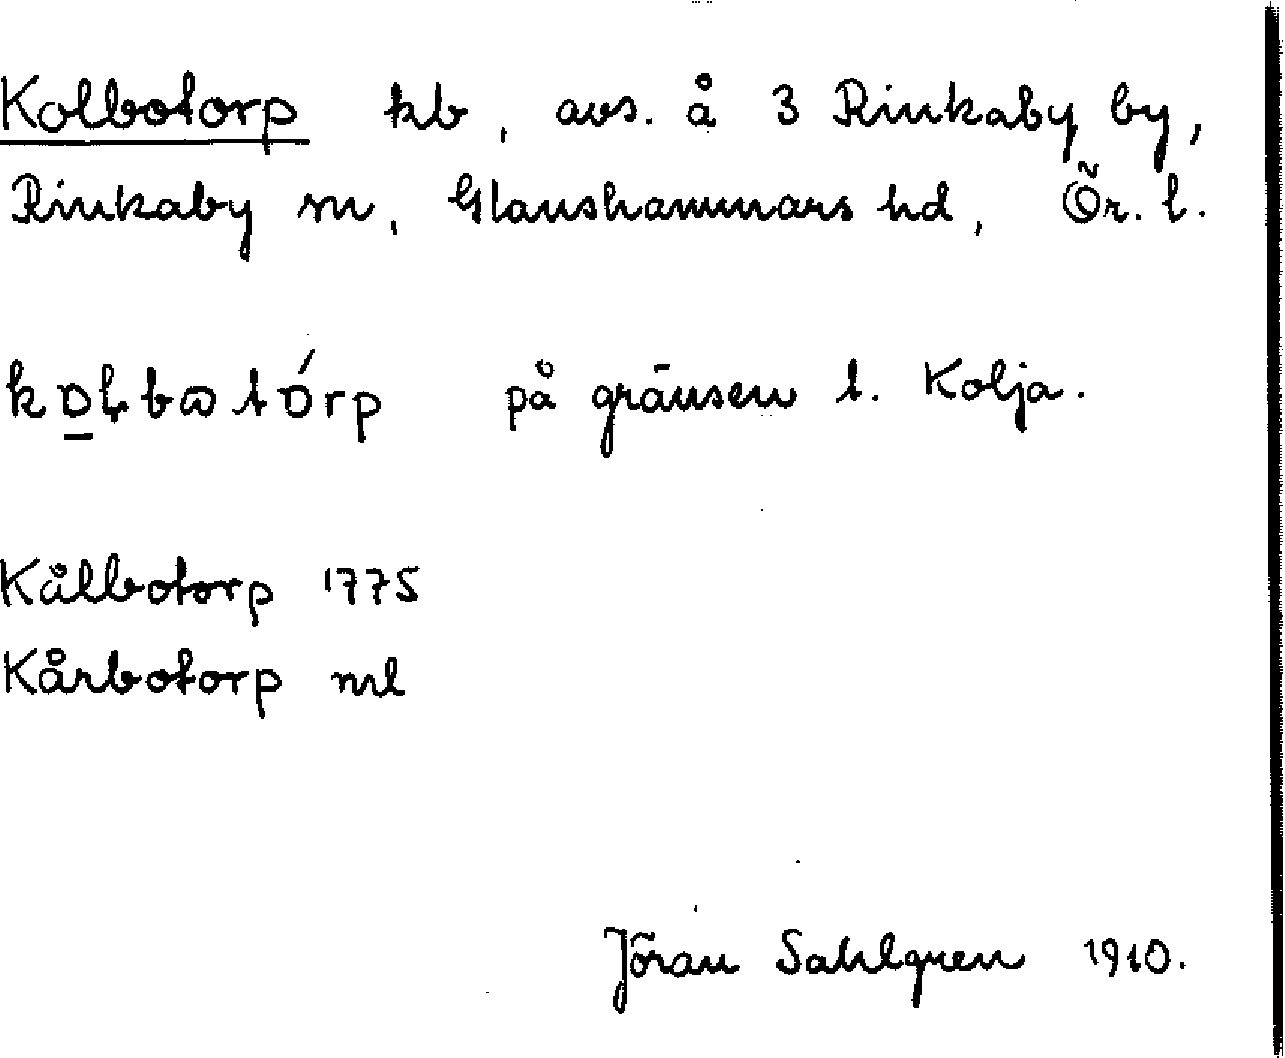 Kolbotorp kb, avs. å 3 Rinkaby by,
Rinkaby sn, Glanshammars hd, Ör. l.
på gränsen t. Kolja.
Kålbotorp 1775
Kårbotorp ml
Jöran Sahlgren 1910.